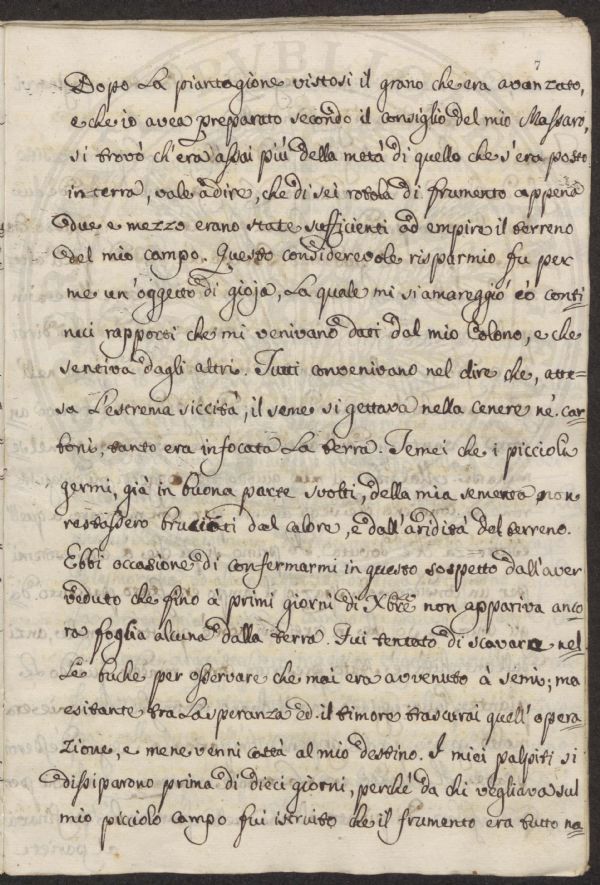 7
Dopo la piantagione vistosi il grano che era avanzato,
e che io avea preparato secondo il consiglio del mio Massaro,
si trovò ch'era assai più della metà di quello che s'era posto
in terra, vale a dire, che di sei rotola di frumento appena
due e mezzo erano state sufficienti ad empire il terreno
del mio campo. Questo considerevole risparmio fu per
me un'oggetto di gioja, la quale mi si amareggiò co' conti-
nui rapporti che mi venivano dati dal mio Colono, e che
sentiva dagli altri. Tutti convenivano nel dire che, atte-
sa l'estrema siccità, il seme si gettava nella cenere ne' car-
boni, tanto era infocata la terra. Temei che i piccioli
germi, già in buona parte svolti, della mia sementa non
restassero bruciati dal calore, e dall'aridità del terreno.
Ebbi occasione di confermarmi in questo sospetto dall'aver
veduto che fino à primi giorni di Xbre non appariva anco-
ra foglia alcuna dalla terra. Fui tentato di scavare nel-
le buche per osservare che mai era avvenuto à semi; ma
esitante tra la speranza ed il timore trascurai quell'opera-
zione, e mene venni città al mio destino. I miei palpiti si
dissiparono prima di dieci giorni, perchè da chi vegliava sul
mio picciolo campo fui istruito che il frumento era tutto na-